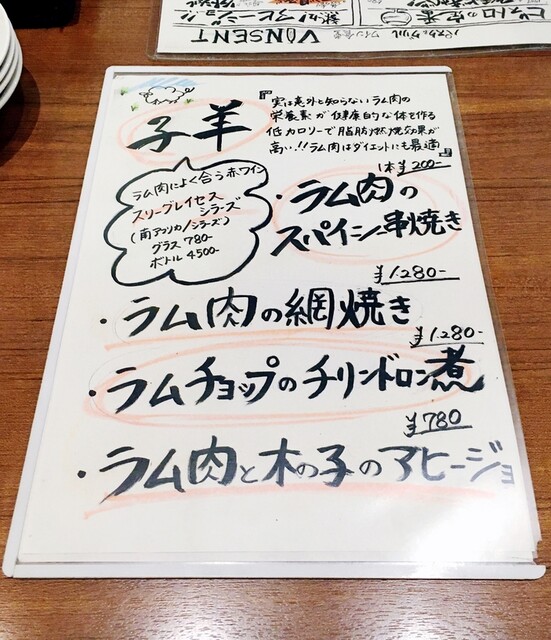 VINSENT
子羊
『実は意外と知らないラム肉の
栄養素が健康的な体を作る
低カロリーで脂肪燃焼効果が
高い!!ラム肉はダイエットにも最適』
ラム肉によく合う赤ワイン
スリーグレイセス
シラーズ
(南アフリカ/シラーズ)
グラス 780-
ボトル 4500-
1本¥200-
・ラム肉の
スパイシー串焼き
¥1.280-
・ラム肉の網焼き
¥1.280-
・ラムチョップのチリンドロン煮
¥780
・ラム肉と木の子のアヒージョ